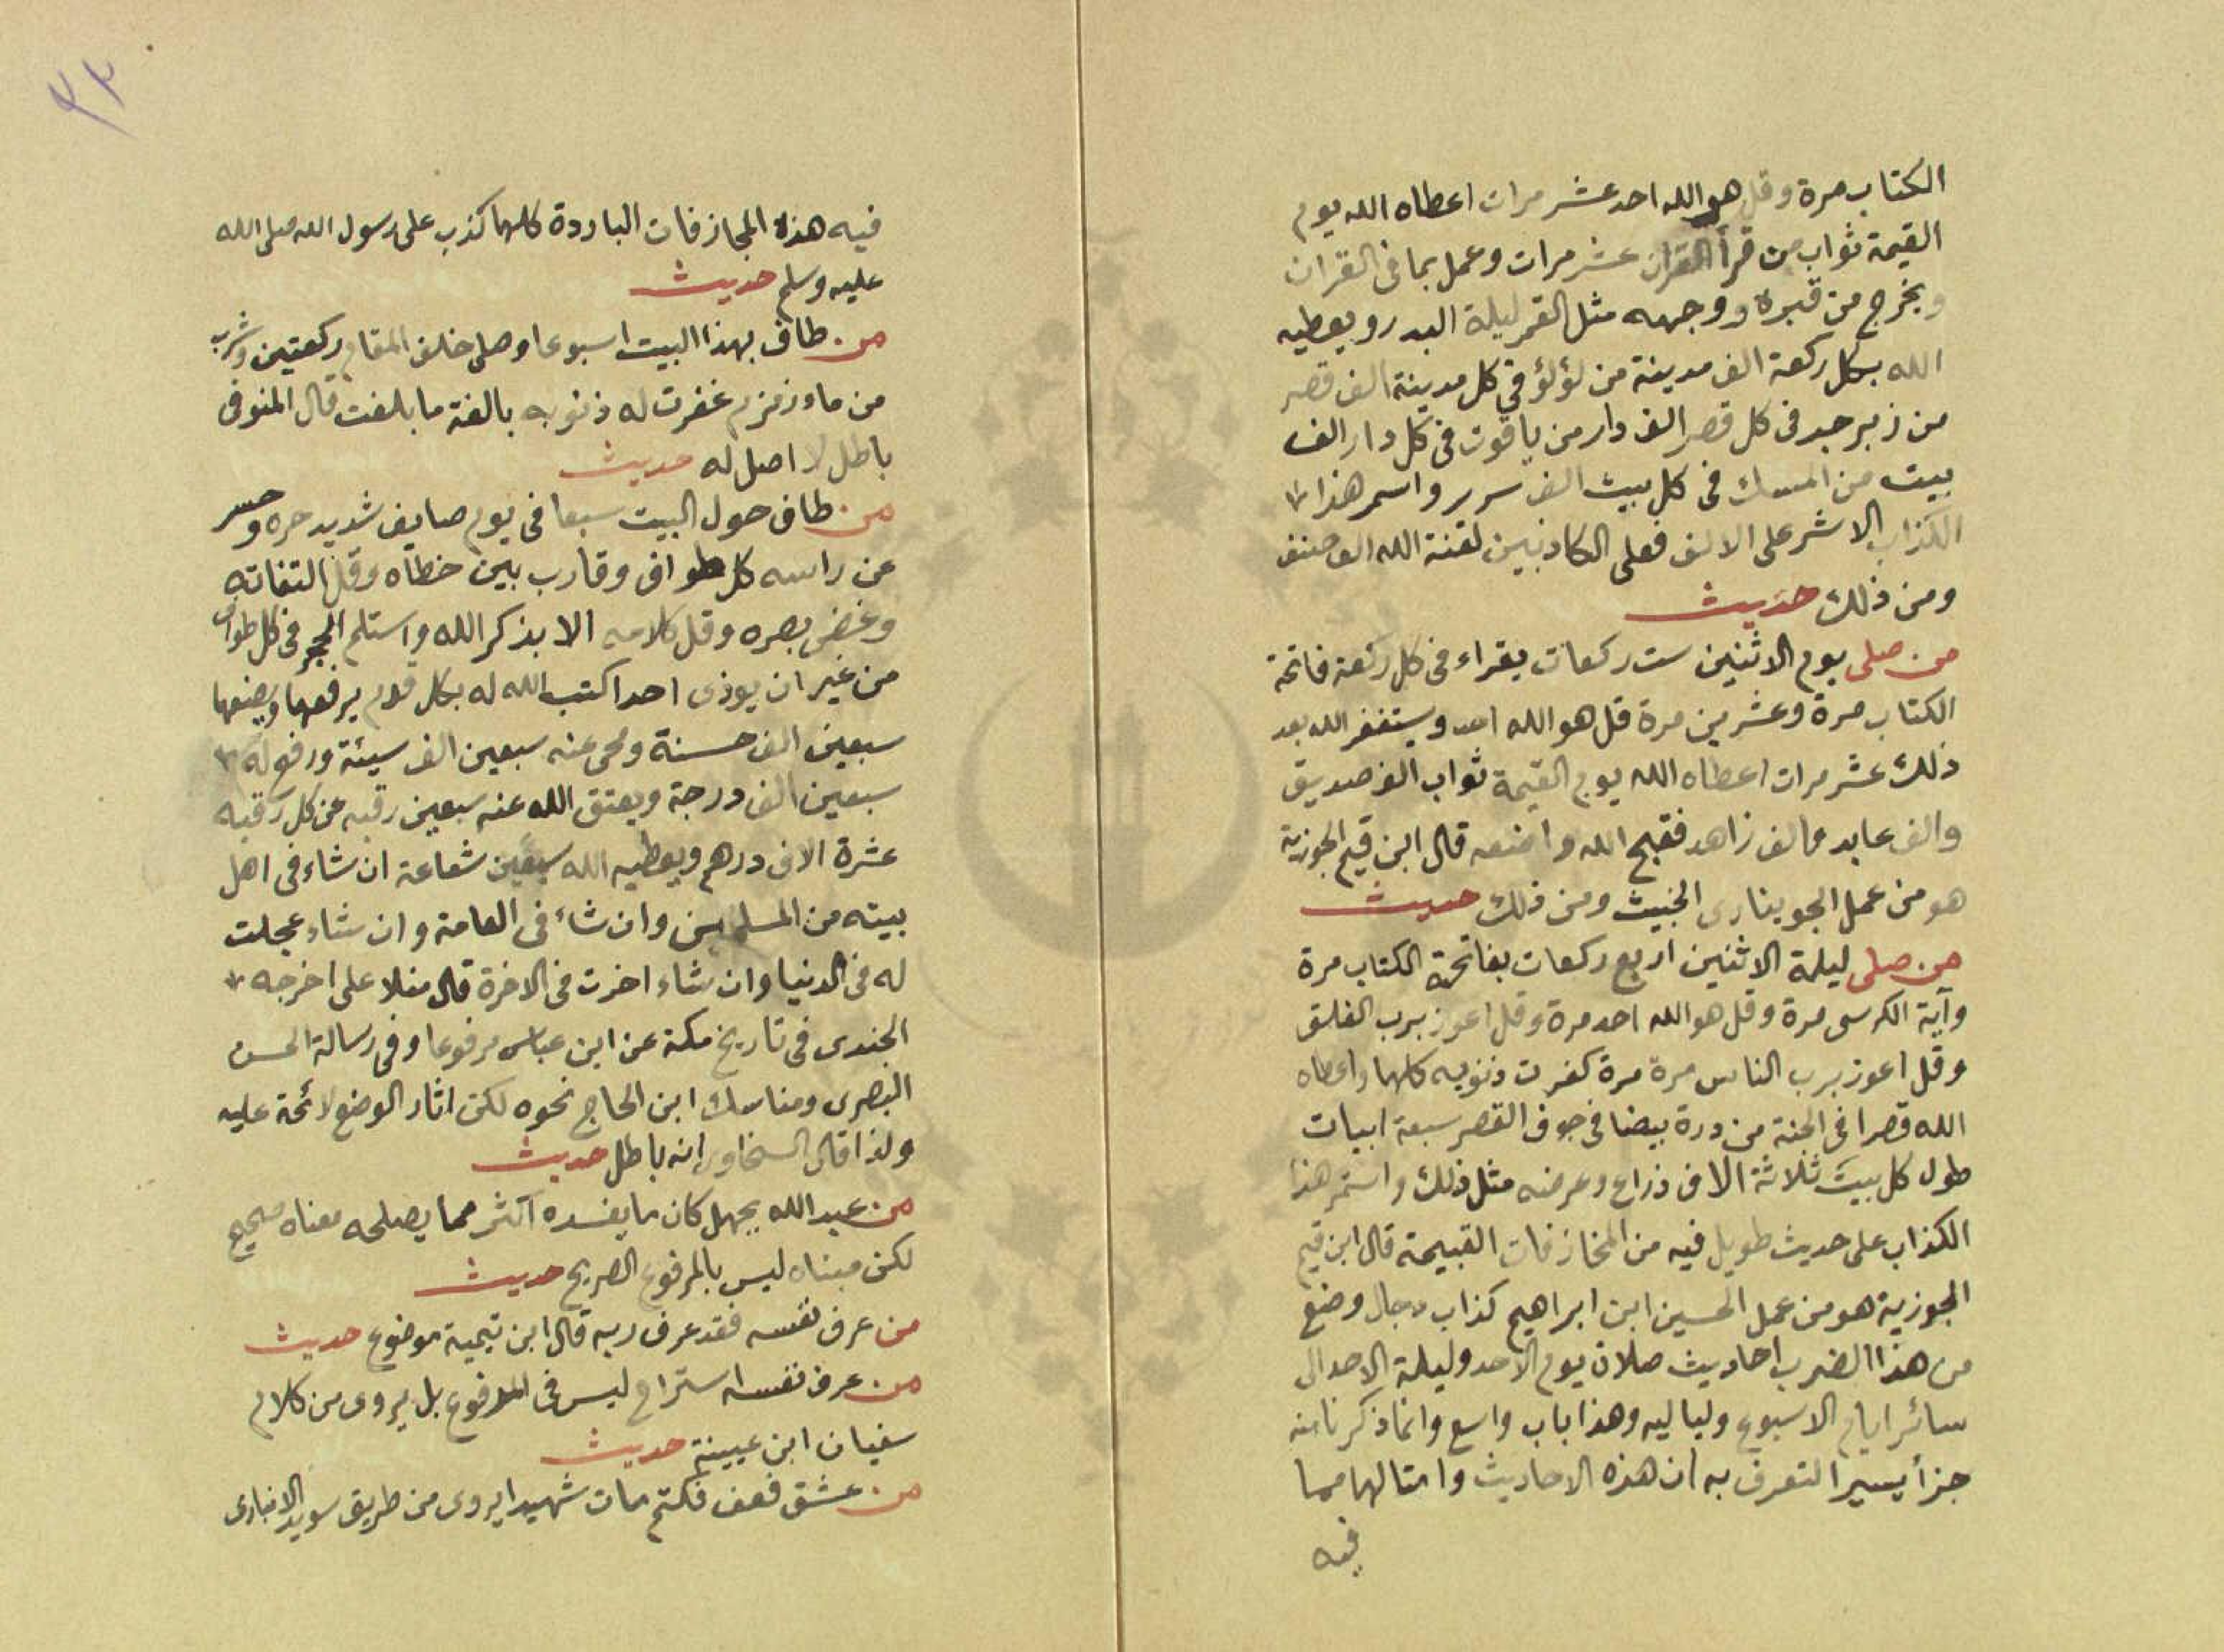 الكتاب مرة وقل هو الله احد عشر مرات اعطاه الله يوم
القيمة ثواب من قرأ القران عشر مرات وعمل بما في القران
ويخرج من قبره ووجهه مثل القمر ليلة البدر ويعطيه
الله بكل ركعة الف مدينة من لؤلؤ في كل مدينة الف قصر
من زبرجد في كل قصر الف دار من ياقوت في كل دار الف
بيت من المسك في كل بيت الف سرير واسمر هذا
الكذاب الاشر على الالف فعلى الكاذبين لعنة الله الف صنف
ومن ذلك حديث
من صلى يوم الاثنين ست ركعات يقراء في كل ركعة فاتحة
الكتاب مرة وعشرين مرة قل هو الله احد ويستغفر الله بعد
ذلك عشر مرات اعطاه الله يوم القيمة ثواب الف صديق
والف عابد والف زاهد فقبح الله واضعه قال ابن قيم الجوزية
هو من عمل الجوينارى الخبيث ومن ذلك حديث
من صلى ليلة الاثنين اربع ركعات بفاتحة الكتاب مرة
وآية الكرسى مرة وقل هو الله احد مرة وقل اعوز برب الفلق
وقل اعوز برب الناس مرة مرة كفرت ذنوبه كلها واعطاه
الله قصرا في الجنة من درة بيضا في جوف القصر سبعة ابيات
طول كل بيت ثلاثة الاف ذراع وعرضه مثل ذلك واستمر هذا
الكذاب على حديث طويل فيه من المخازفات القبيحة قال ابن قيم
الجوزية هو من عمل الحسين ابن ابراهيم كذاب دجال وضع
من هذا الضرب احاديث صلان يوم الاحد وليلة الاحد الى
سائر ايام الاسبوع ولياليه وهذا باب واسع وانما ذكرنا منه
جزأ يسيرا لتعرف به ان هذه الاحاديث وامثالها مما
فيه
٣٣
فيه هذه المجازفات الباردة كلها كذب على رسول الله صلى الله
عليه وسلم حديث
من طاف بهذا البيت اسبوعا وصلى خلف المقام ركعتين وشرب
من ماء زمزم غفرت له ذنوبه بالغة ما بلغت قال المنوفى
باطل لا اصل له حديث
من طاف حول البيت سبعا في يوم صايف شديد حره وحسر
عن راسه كل طواف وقارب بين خطاه وقل التفاته
وغض بصره وقل كلامه الا بذكر الله واستلم الحجر في كل طواف
من غير ان يوذى احدا كتب الله له بكل قدم يرفعها ويضعها
سبعين الف حسنة ومحى عنه سبعين الف سيئة ورفع له
سبعين الف درجة ويعتق الله عنه سبعين رقبه عن كل رقبه
عشرة الاف درهم ويعطيه الله سبعين شفاعة ان شاء في اهل
بيته من المسلمين وان شاء في العامة وان شاء عجلت
له في الدنيا وان شاء اخرت في الاخرة قال منلا على اخرجه
الجندى في تاريخ مكة عن ابن عباس مرفوعا وفي رسالة الحسن
البصرى ومناسك ابن الحاج نحوه لكن اثار الوضع لائحة عليه
ولذا قال السخاوى انه باطل حديث
من عبد الله بجهل كان ما يفسده اكثر مما يصلحه معناه صحيح
لكن مبناه ليس بالمرفوع الصريح حديث
من عرف نفسه فقد عرف ربه قال ابن تيمية موضوع حديث
من عرف نفسه استراح ليس في المرفوع بل يروى من كلام
سفيان ابن عيينة حديث
من عشق فعف فكتم مات شهيدا يروى من طريق سويد الانبارى